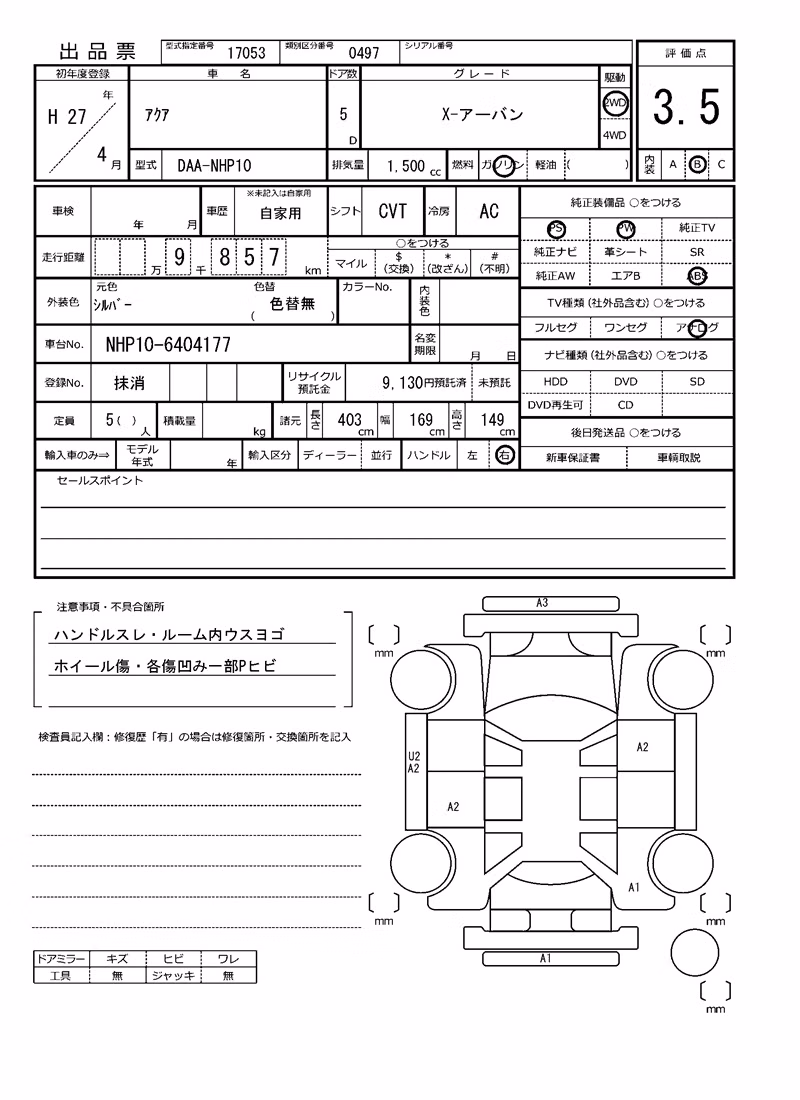 出品票 型式指定番号 17053 類別区分番号 0497 シリアル番号
評価点
3.5
内装 A B C
初年度登録 車名 ドア数 グレード 駆動
H 27 年 4 月 アクア 5 D X-アーバン 2WD
4WD
型式 DAA-NHP10 排気量 1,500 cc 燃料 ガソリン 軽油 ( )
車検 年 月 車歴 ※未記入は自家用 自家用 シフト CVT 冷房 AC
走行距離 万 9 千 8 5 7 km ○をつける
マイル $ (交換) * (改ざん) # (不明)
外装色 元色 シルバー 色替 色替無 ( ) カラーNo. 内装色
車台No. NHP10-6404177 名変期限 月 日
登録No. 抹消 リサイクル預託金 9,130円預託済 未預託
定員 5( ) 人 積載量 kg 諸元 長さ 403 cm 幅 169 cm 高さ 149 cm
輸入車のみ⇒ モデル年式 年 輸入区分 ディーラー 並行 ハンドル 左 右
純正装備品 ○をつける
PS PW 純正TV
純正ナビ 革シート SR
純正AW エアB ABS
TV種類(社外品含む)○をつける
フルセグ ワンセグ アナログ
ナビ種類(社外品含む)○をつける
HDD DVD SD
DVD再生可 CD
後日発送品 ○をつける
新車保証書 車輌取説
セールスポイント
注意事項・不具合箇所
ハンドルスレ・ルーム内ウスヨゴ
ホイール傷・各傷凹み一部Pヒビ
検査員記入欄:修復歴「有」の場合は修復箇所・交換箇所を記入
ドアミラー キズ ヒビ ワレ
工具 無 ジャッキ 無
A3
mm
mm
A2
U2
A2
A2
A1
mm
mm
A1
mm